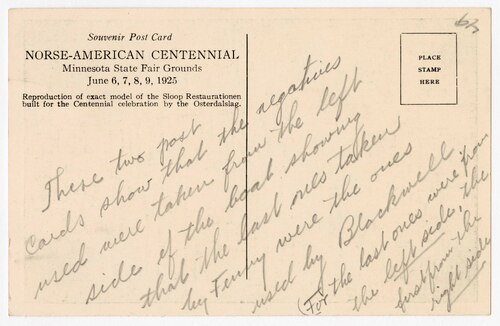 Souvenir Post Card
NORSE-AMERICAN CENTENNIAL
Minnesota State Fair Grounds
June 6, 7, 8, 9, 1925
Reproduction of exact model of the Sloop Restaurationen
built for the Centennial celebration by the Osterdalslag.
PLACE
STAMP
HERE
These two post
cards show that the negatives
used were taken from the left
side of the boat showing
that the last ones taken
by Fenny were the ones
used by Blackwell
(For the last ones were from
the left side, the
first from the
right side